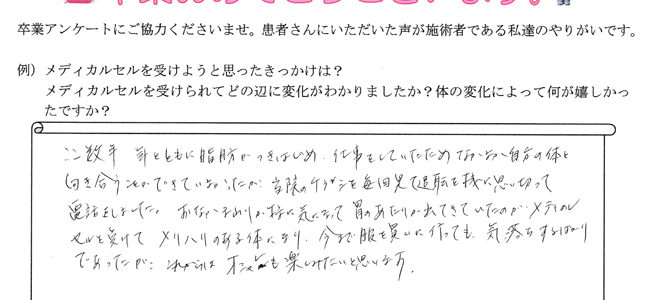 卒業おめでとうございます。
卒業アンケートにご協力くださいませ。患者さんにいただいた声が施術者である私達のやりがいです。
例）メディカルセルを受けようと思ったきっかけは？
メディカルセルを受けられてどの辺に変化がわかりましたか？体の変化によって何が嬉しかっ
たですか？
ここ数年 年とともに脂肪がつきはじめ、仕事をしていたため なかなか自分の体と
向き合うことができていなかったが、当院のチラシを毎回見て退職を機に思い切って
電話をしました。おなかまわりが特に気になって 胃のあたりが出てきていたのが メディカル
セルを受けて メリハリのある体になり、今まで服を買いに行っても、気落ちするばかり
であったが、これからは オシャレも楽しみたいと思います。